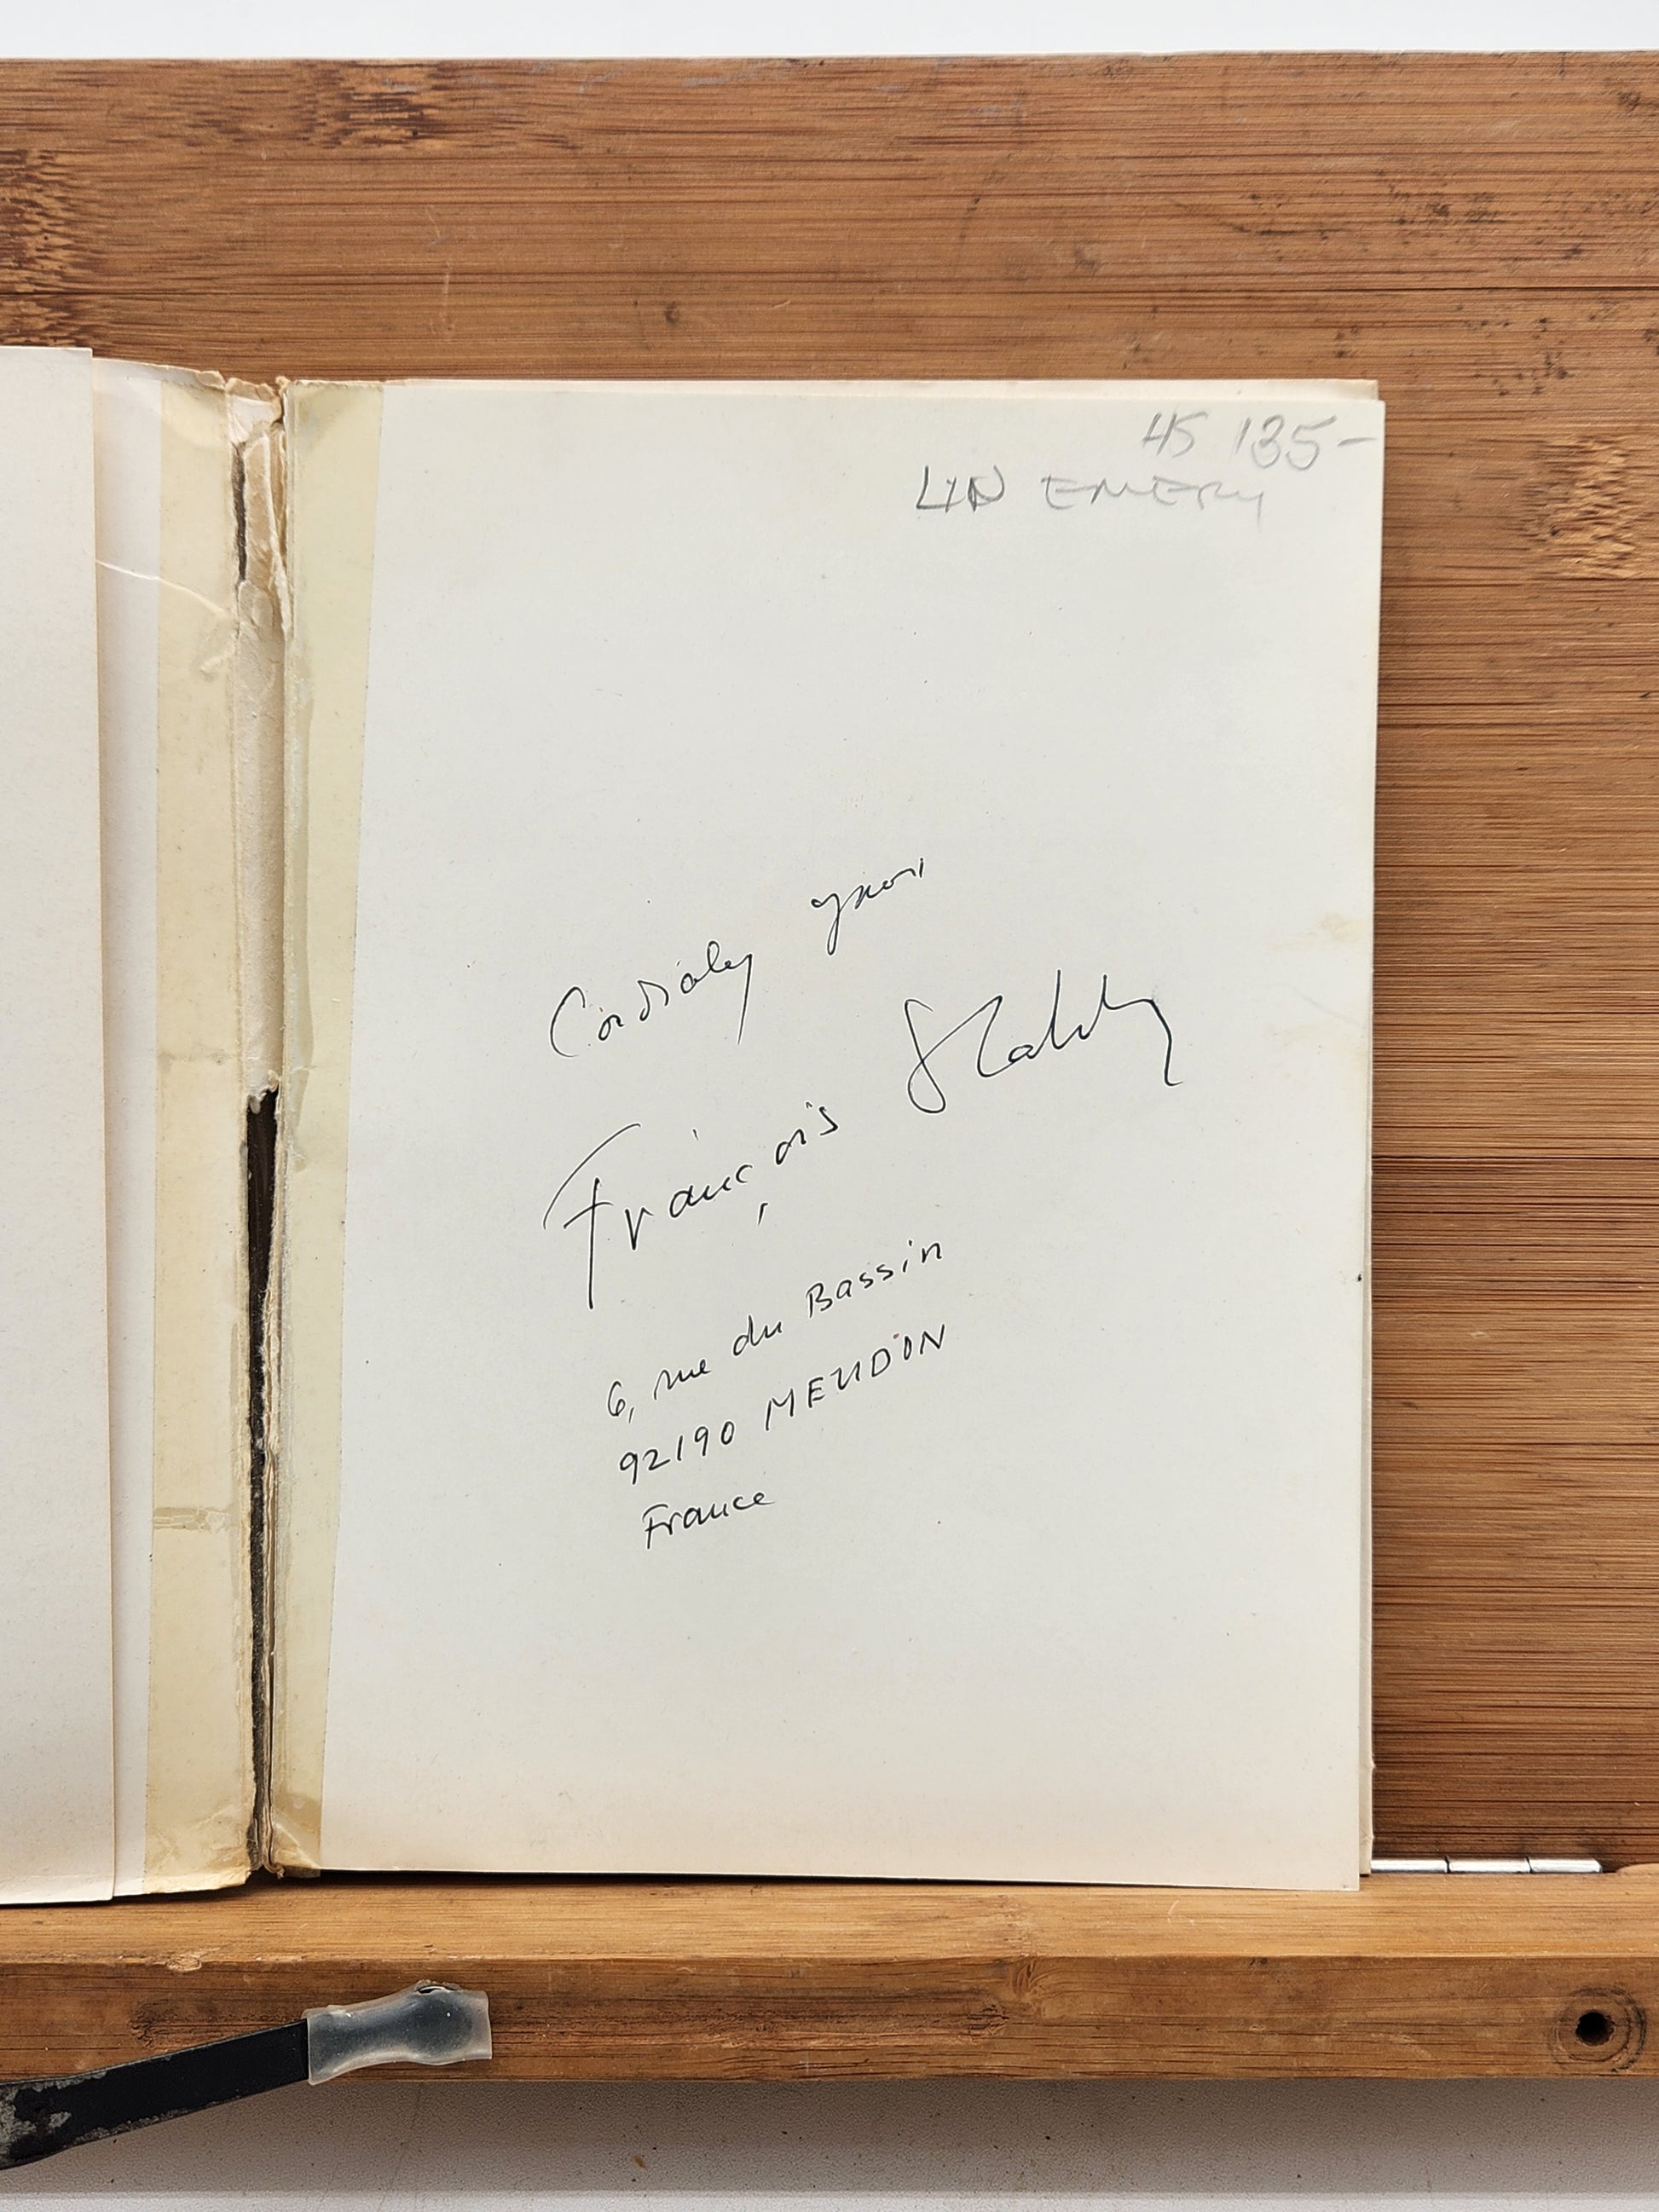 45 135-
LIN EMERY
Cordialy yours
François Stahly
6, rue du Bassin
92190 MEUDON
France